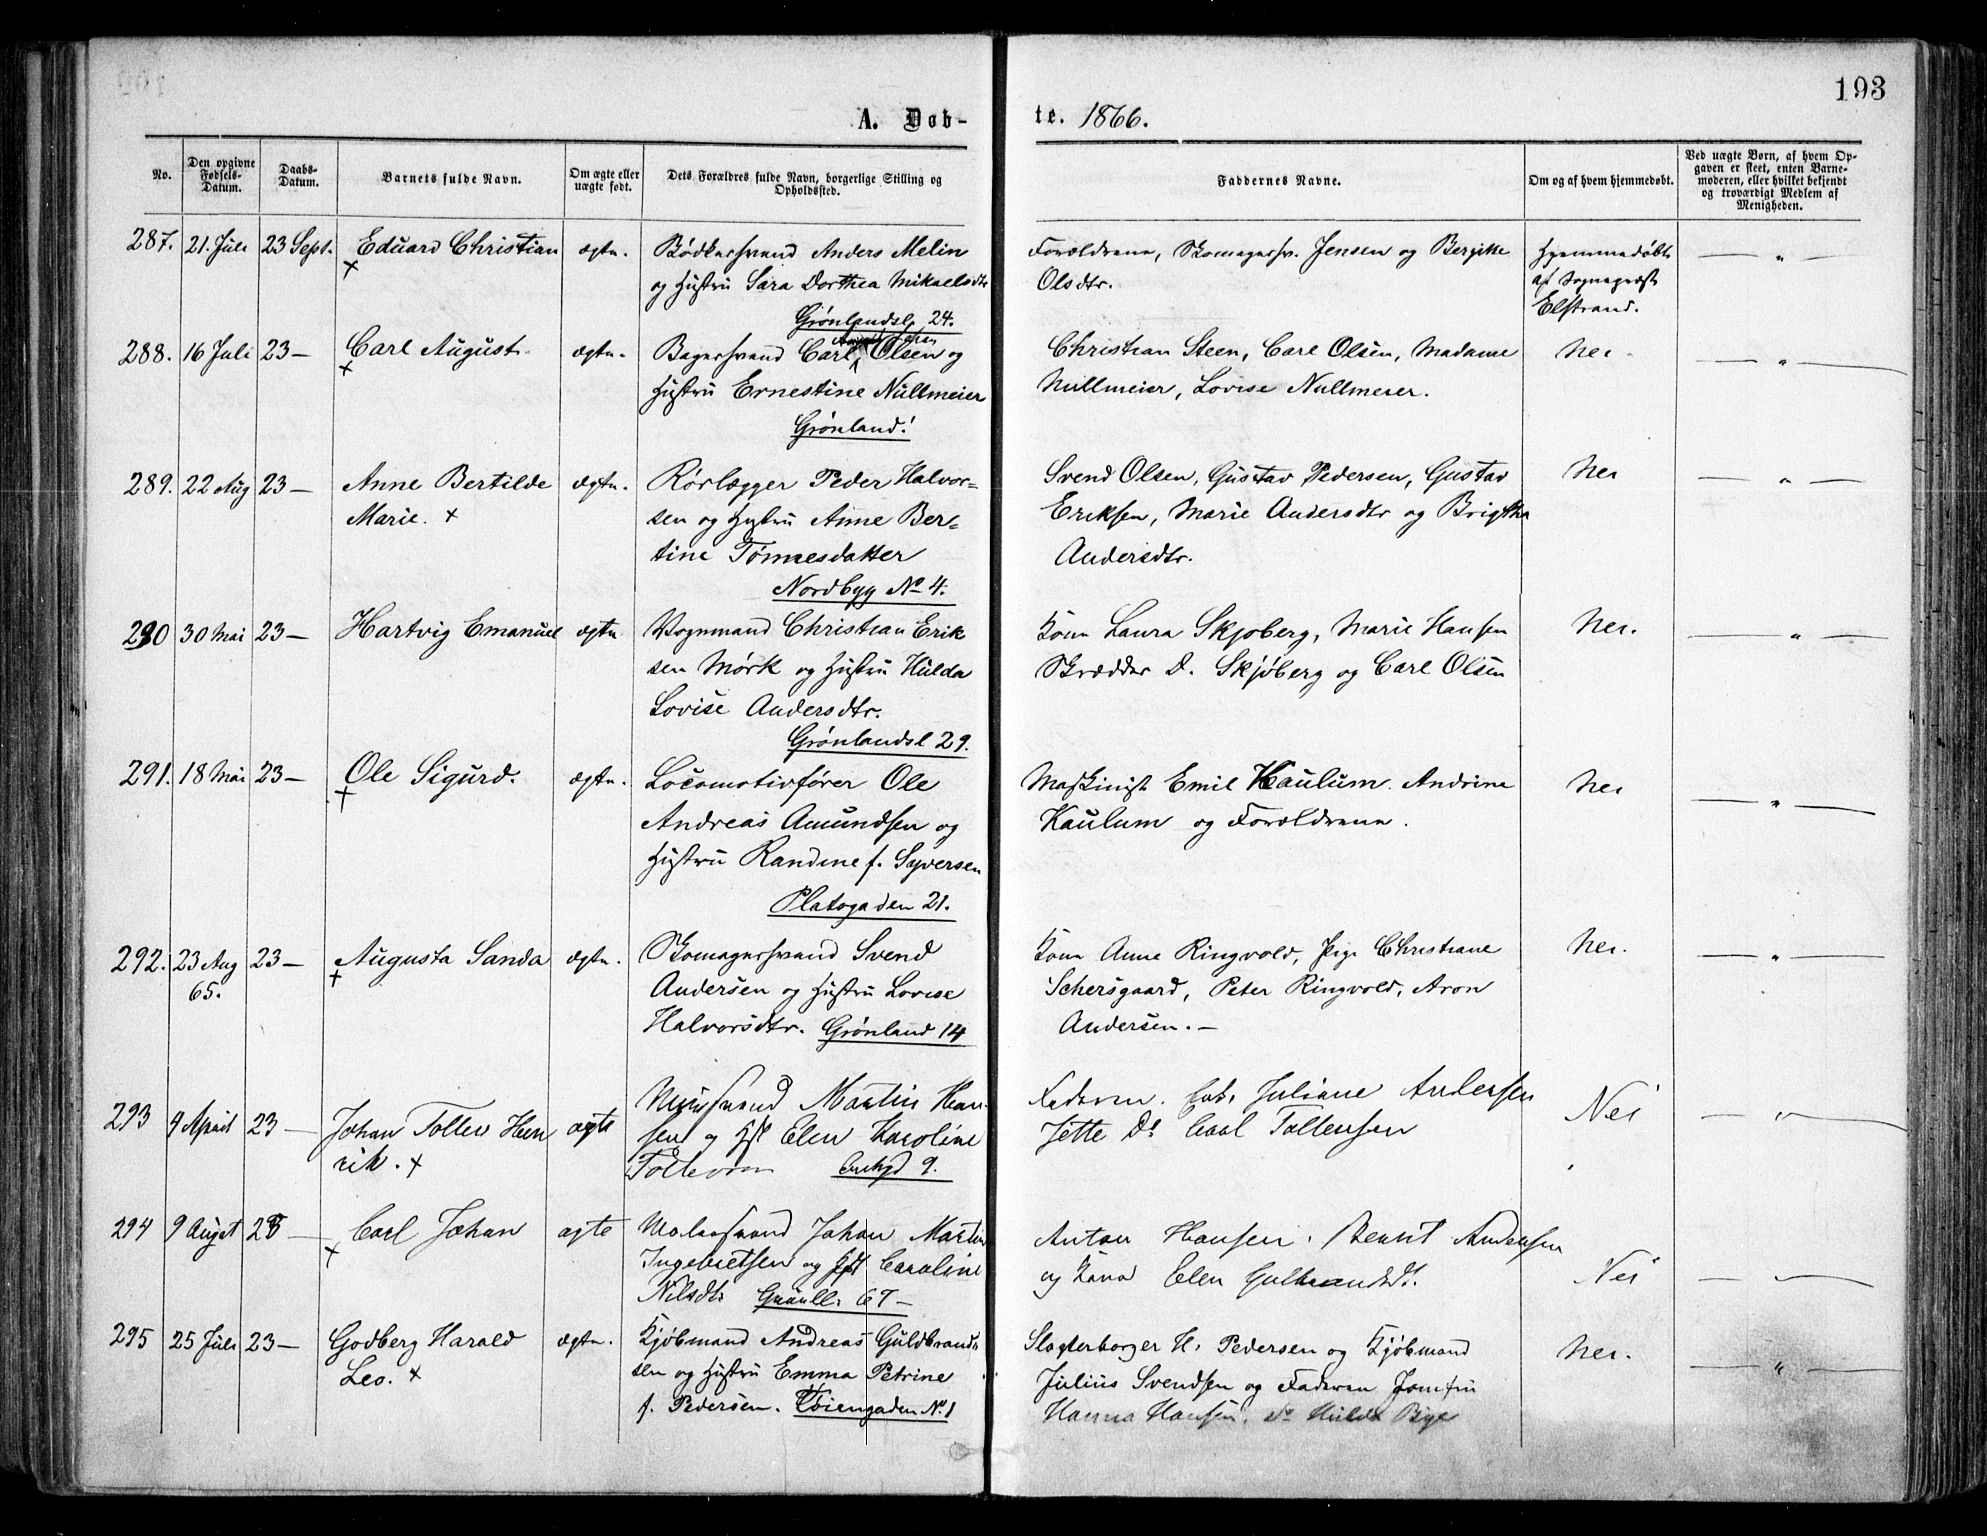 193
A. Døb-
te. 1866.
No.
Den opgivne Fødsels-Datum.
Daabs-Datum.
Barnets fulde Navn.
Om ægte eller uægte født.
Dets Forældres fulde Navn, borgerlige Stilling og Opholdssted.
Faddernes Navne.
Om og af hvem hjemmedøbt.
Ved uægte Børn, af hvem Op-
gaven er skeet, enten Barne-
moderen, eller hvilket bekjendt
og troværdigt Medlem af
Menigheden.
287. 21. Juli 23 Sept. Eduard Christian ægte. Bødkersvend Anders Melin
og Hustru Sara Dorthea Mikaelsdtr
Grønlandsl 24.
Forældrene, Skomagersv. Jensen og Bergitte
Olsdtr.
Hjemmedøbt
af Sognepræst
Elstrand.
288. 16 Juli 23 — Carl August. ægte. Bagersvend Carl Olsen og
Hustru Ernestine Nullmeier
Grønland.
Christian Steen, Carl Olsen, Madame
Nullmeier, Lovise Nullmeier.
Nei.
289. 22 Aug 23 — Anne Bertilde
Marie. ægte. Rørlægger Peder Halvor-
sen og Hustru Anne Ber-
tine Tønnesdatter
Nordbyg No 4.
Svend Olsen, Gustav Pedersen, Gustav
Eriksen, Marie Andersdtr og Brigtha
Andersdtr.
Nei
290 30 Mai 23 — Hartvig Emanuel ægte Vognmand Christian Erik
sen Mørk og Hustru Hulda
Lovise Andersdtr.
Grønlandsl 29.
Kone Laura Skjøberg, Marie Hansen
Skrædder D. Skjøberg og Carl Olsen
Nei.
291. 18 Mai 23 — Ole Sigurd. ægte. Locomotivfører Ole
Andreas Amundsen og
Hustru Randine f. Syversen
Platogaden 21.
Maskinist Emil Kaulum. Andrine
Kaulum og Forældrene.
Nei
292. 23 Aug
65. 23 — Augusta Sanda ægte. Skomagersvend Svend
Andersen og Hustru Lovise
Halvorsdtr. Grønland 14
Kone Anne Ringvold, Pige Christiane
Schersgaard, Peter Ringvold, Aron
Andersen. —
Nei.
293 9 April 23 — Johan Tollev Hen
rik. ægte Martin Han-
sen og Elen Karoline
9.
Juliane Andersen
Jette Do Carl Tollensen
Nei
294 9 August 23 — Carl Johan ægte Malersvend Johan Martin
Ingebretsen og Caroline
Nilsdtr 67 —
Anton Hansen. Bernt Andersen
og Kone Elen Gulbrandsdt.
Nei
295 25 Juli 23 — Godberg Harald
Leo. ægte. Kjøbmand Andreas Guldbrand-
sen og Hustru Emma Petrine
f. Pedersen. Tøiengaden No 1
Slagterborger H. Pedersen og Kjøbmand
Julius Svendsen og Faderen Jomfru
Hanna Hansen. do Hulda Bye
Nei.